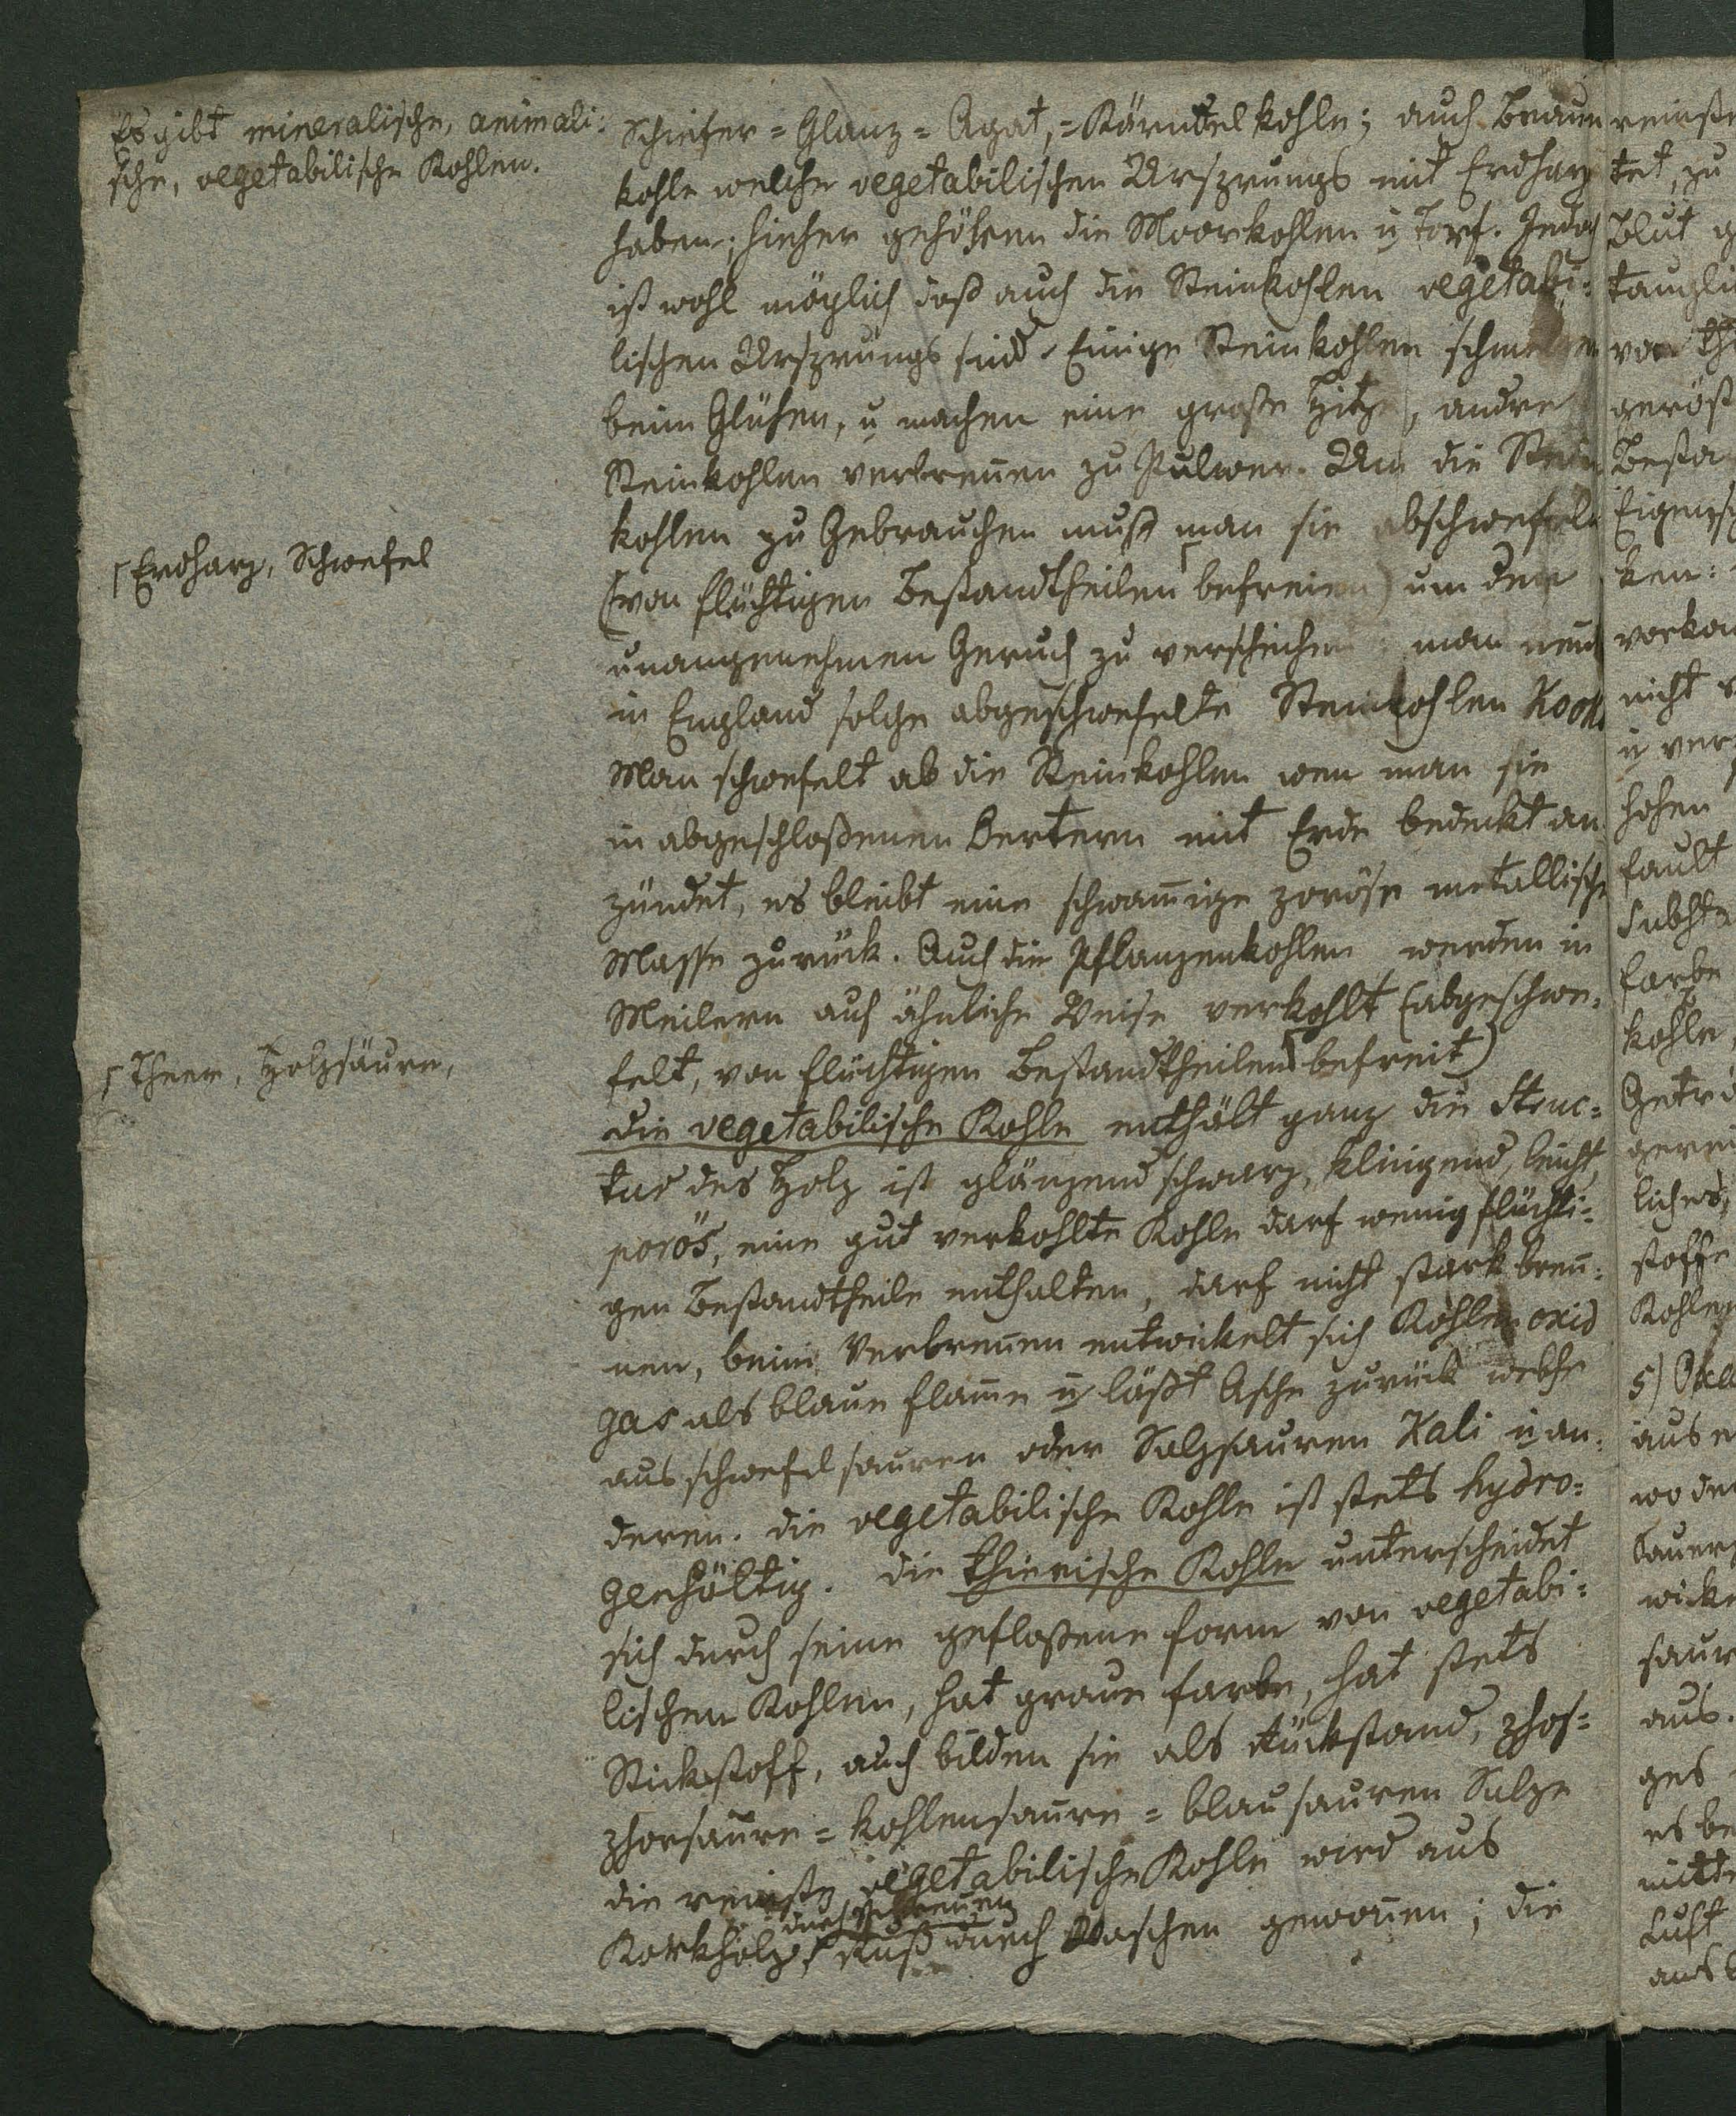 Es gibt mineralische, animali:
sche, vegetabilische Kohlen.
Schiefer = Glanz = Agat, = Kärntelkohle; auch Braun
kohle welche vegetabilischen Ursprungs mit Erdharz
haben; hieher gehöhren die Moorkohlen u Torf. Jedoch
ist wohl möglich daß auch die Steinkohlen vegetabi:
lischen Ursprungs sind. Einige Steinkohlen schmelzen
beim Glühen, u machen eine große Hitze, andre
Steinkohlen verbreñen zu Pulwer. Um die Stein
kohlen zu Gebrauchen muß man sie abschwefeln
(von flüchtigen Bestandtheilen ⌈ befreien) um den
unangenehmen Geruch zu verscheichen man neñt
in England solche abgeschwefelte Steinkohlen Kooks
Man schwefelt ab die Steinkohlen wen man sie
in abgeschloßenen Oertern mit Erde bedeckt an
zündet, es bleibt eine schwam̄ige poröse metallische
Masse zurück. Auch die Pflanzenkohlen werden in
Meilern auf ähnliche Weise verkohlt (abgeschwe:
felt, von flüchtigen Bestandtheilen ⌈ befreit)
die vegetabilische Kohle enthält ganz die Struc:
tur des Holz ist glänzend schwarz, klingend, leicht,
porös, eine gut verkohlte Kohle darf wenig flüchti:
gen Bestandtheile enthalten, darf nicht stark breñ:
nen, beim Verbreñen entwickelt sich Kohlenoxid
gas als blaue flam̄e u läßt Asche zurück welche
aus schwefelsauren oder Salzsauren Kali u an:
deren. die vegetabilische Kohle ist stets hydro:
genhältig. die thierische Kohle unterscheidet
sich durch seine gefloßene form von vegetabi:
lischen Kohlen, hat graue farbe, hat stets
Stickstoff, auch bilden sie als Rückstand, phos:
phorsaure = kohlensaure = blausauren Salze
die reinste vegetabilische Kohle wird aus
durch Verbreñen
Korkholz, Ruß durch Waschen gewoñen; die
⌈ Erdharz, Schwefel
⌈ Theer, Holzsäure,
tet, zu
Blut
von
ken:
nicht
u ver
hohen
fault
farbe
kohle,
liches,
stoffe
Kohlen
aus.
ges
es be
Luft